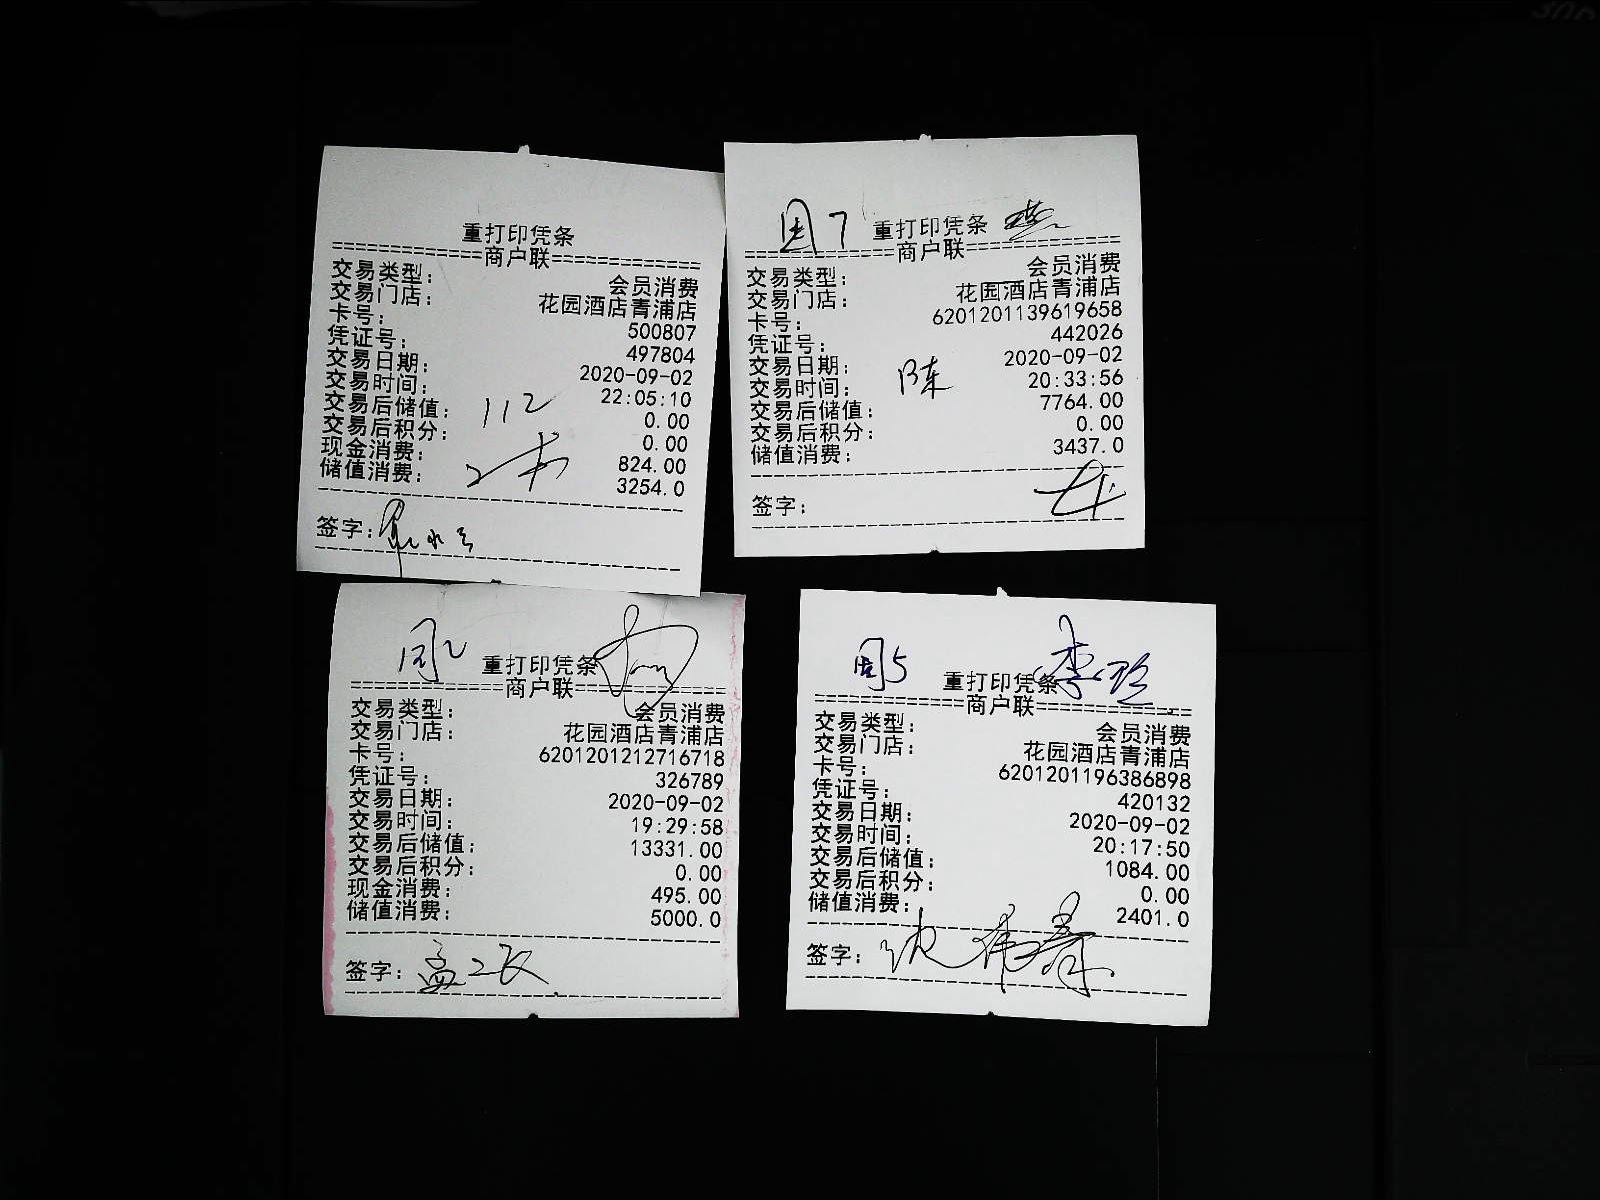 重打印凭条
==============商户联==============
交易类型： 会员消费
交易门店： 花园酒店青浦店
卡号： 500807
凭证号： 497804
交易日期： 2020-09-02
交易时间： 22:05:10
交易后储值： 0.00
交易后积分： 0.00
现金消费： 824.00
储值消费： 3254.0
112
签字：
7 重打印凭条
==============商户联==============
交易类型： 会员消费
交易门店： 花园酒店青浦店
卡号： 6201201139619658
凭证号： 442026
交易日期： 2020-09-02
交易时间： 20:33:56
交易后储值： 7764.00
交易后积分： 0.00
储值消费： 3437.0
陈
签字：
周2 重打印凭条
==============商户联==============
交易类型： 会员消费
交易门店： 花园酒店青浦店
卡号： 6201201212716718
凭证号： 326789
交易日期： 2020-09-02
交易时间： 19:29:58
交易后储值： 13331.00
交易后积分： 0.00
现金消费： 495.00
储值消费： 5000.0
签字：
周5 重打印凭条
==============商户联==============
交易类型： 会员消费
交易门店： 花园酒店青浦店
卡号： 6201201196386898
凭证号： 420132
交易日期： 2020-09-02
交易时间： 20:17:50
交易后储值： 1084.00
交易后积分： 0.00
储值消费： 2401.0
签字：